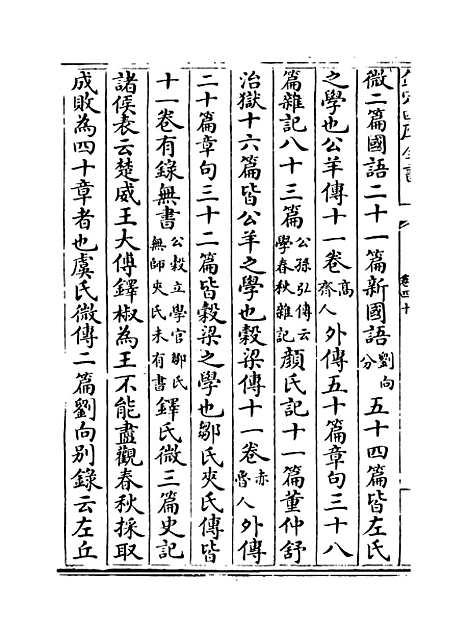 微二篇國語二十一篇新國語劉向分五十四篇皆左氏
之學也公羊傳十一卷高齊人外傳五十篇章句三十八
篇雜記八十三篇公孫弘傳云學春秋雜記顔氏記十一篇董仲舒
治獄十六篇皆公羊之學也榖梁傳十一卷赤魯人外傳
二十篇章句三十二篇皆榖梁之學也鄒氏夾氏傳皆
十一卷有錄無書公榖立學官鄒氏無師夾氏未有書鐸氏微三篇史記
諸侯表云楚威王大傅鐸椒為王不能盡觀春秋採取
成敗為四十章者也虞氏微傳二篇劉向别錄云左丘
卷四十